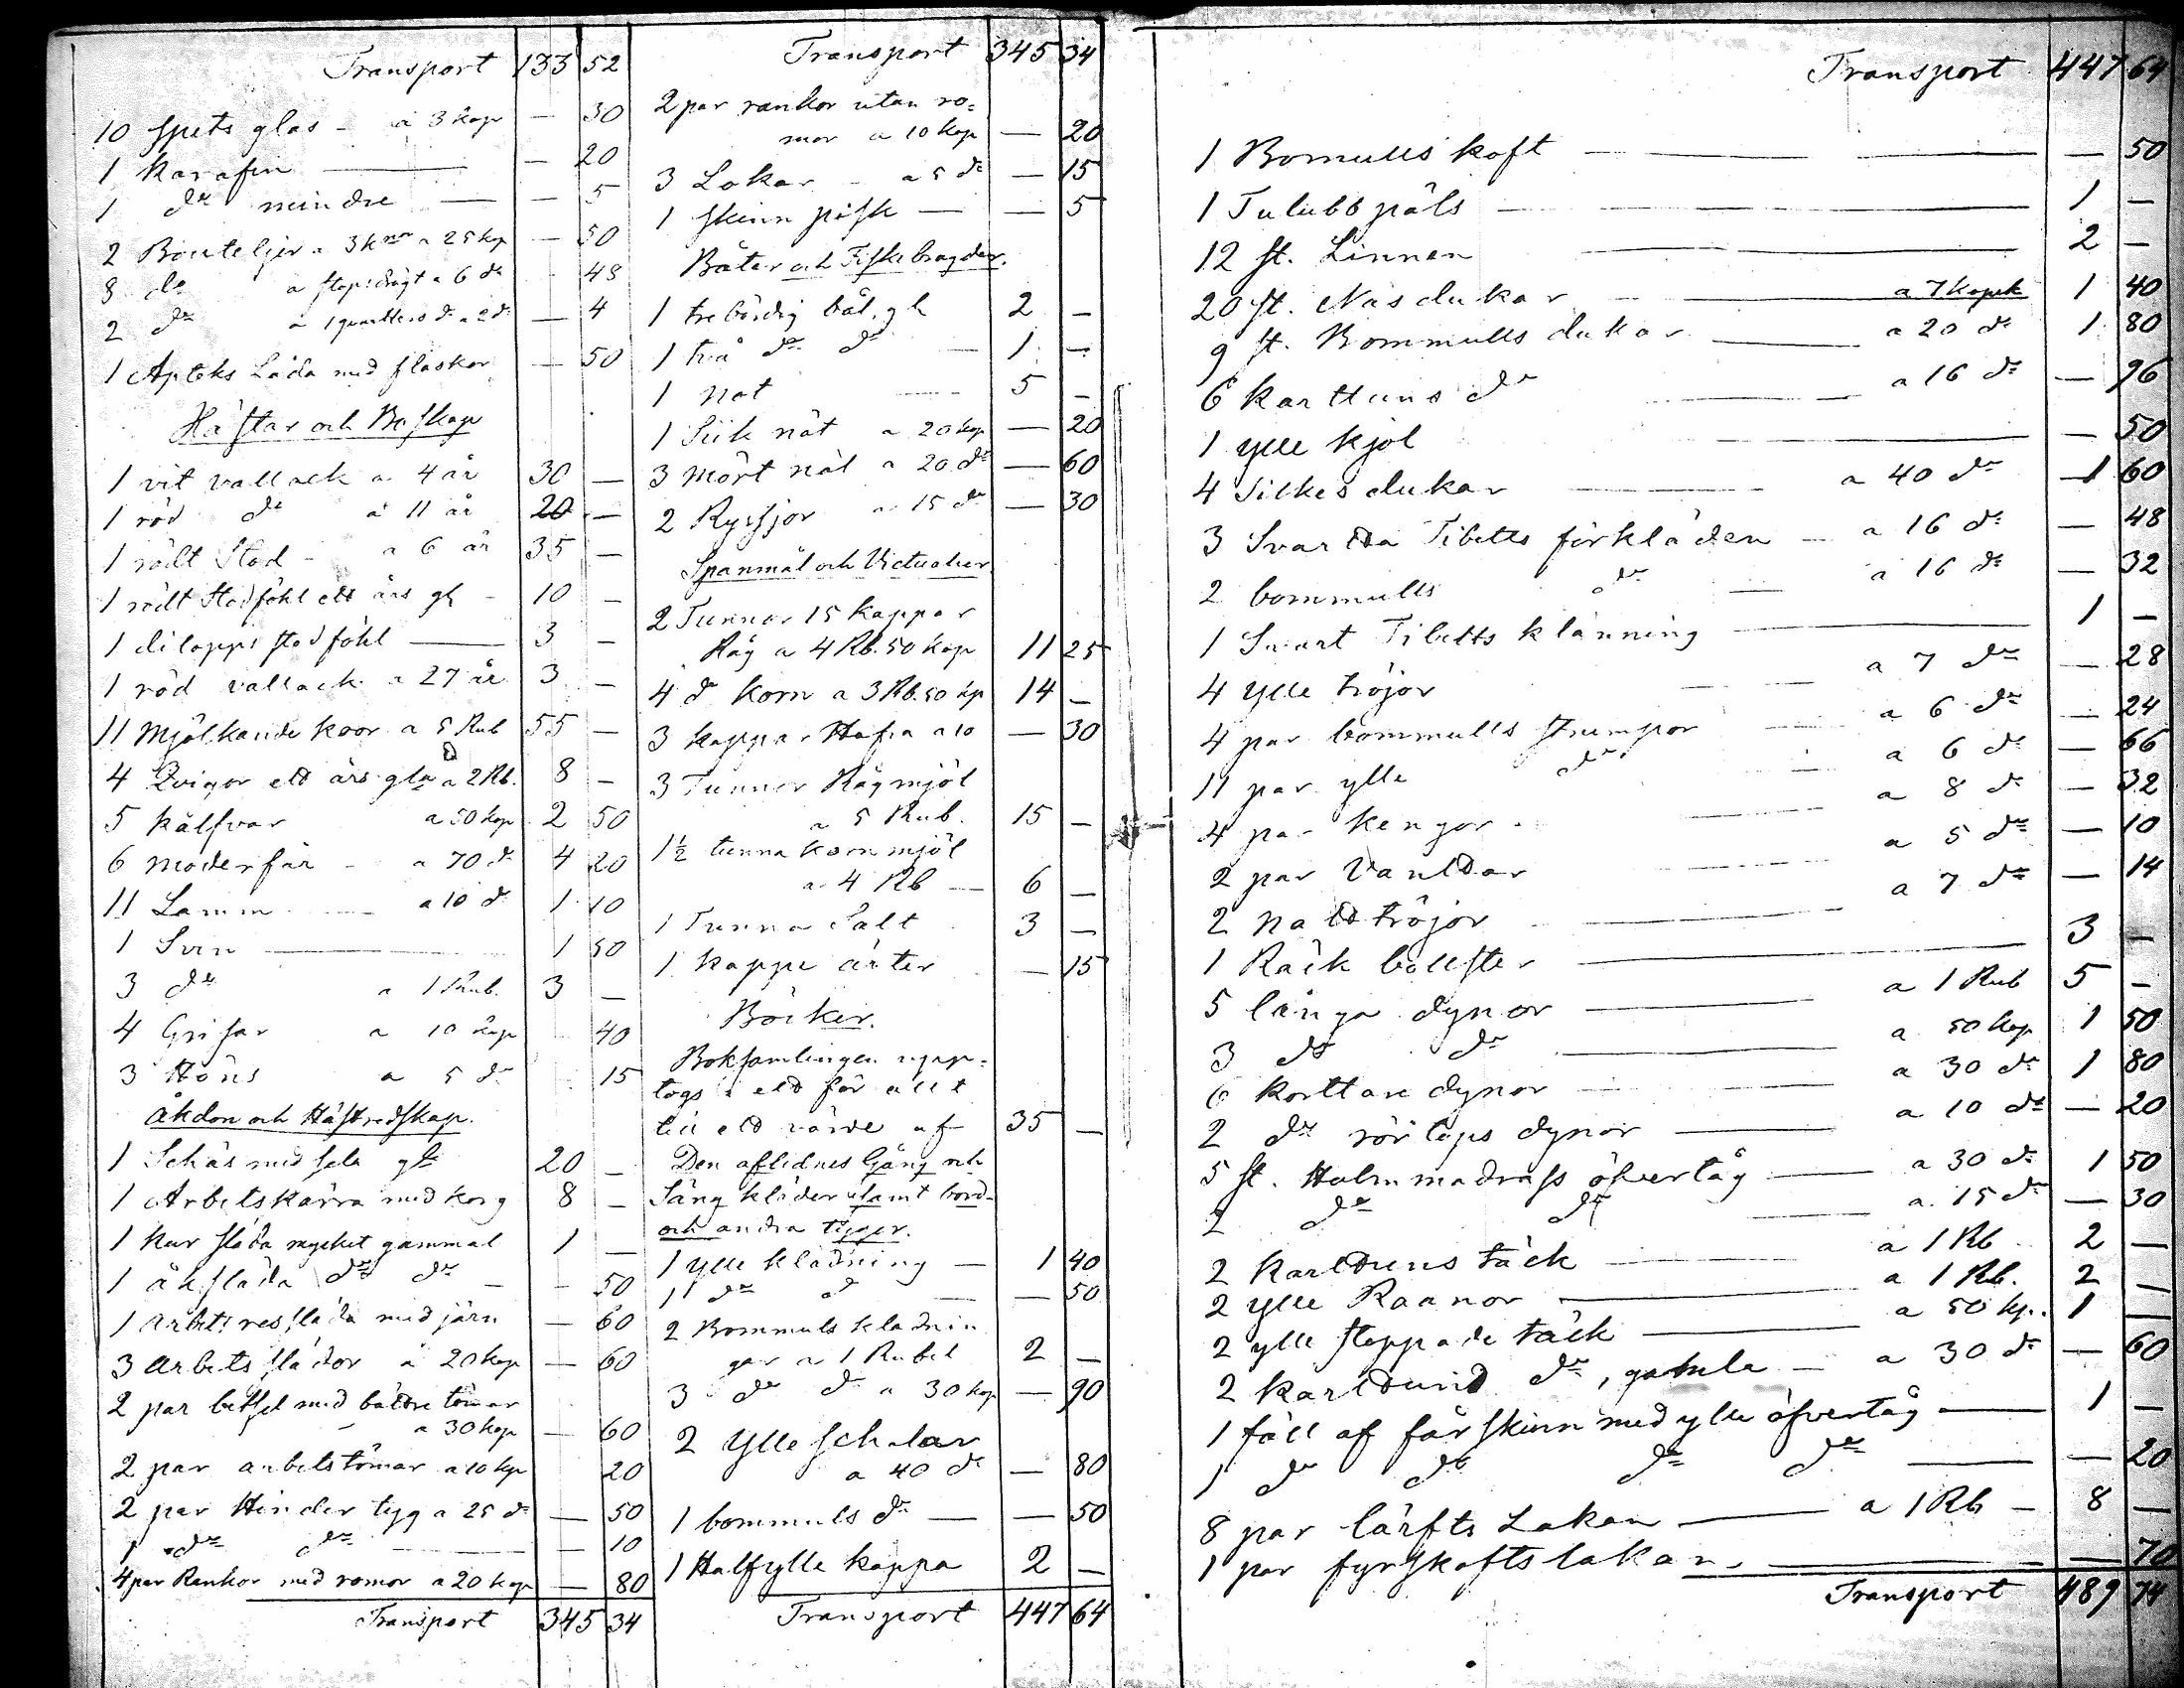 Transport 133 52
10 spets glas - a 3 kop — 30
1 karafin — — 20
1 do mindre — — 5
2 Bouteljer a 3 knor a 25 kop — 50
8 do a stop: drygt a 6 do 48
2 do a 1 quarters do a 2 do — 4
1 Apteks Låda med flaskor — 50
Hästar och Boskap
1 vit vallack a 4 år 30 —
1 röd do a 11 år 20 —
1 rödt Stod - a 6 år 35 —
1 rödt Stodföhl ett års gl - 10 —
1 dilopps stodföhl — 3 —
1 röd vallack a 27 år 3 —
11 Mjölkande koor a 5 Rub 55 —
4 Qvigor ett års gla a 2 Rb. 8 —
5 kalfvar a 50 kop 2 50
6 moderfår - a 70 do 4 20
11 Lamm — a 10 do 1 10
1 Svin — 1 50
3 do a 1 Rub. 3 —
4 Grisar a 10 kop 40
3 Höns a 5 do 15
Åkdon och Hästredskap.
1 Schäs med sela gl 20 —
1 Arbetskärra med korg 8 —
1 kur släda mycket gammal 1 —
1 åksläda do do — - 50
1 arbets ressläda med järn — 60
3 arbets slädor a 20 kop — 60
2 par bettsel med bättre tömar
a 30 kop — 60
2 par arbetstömar a 10 kop 20
2 par Hinder tyg a 25 do — 50
1 do do — — 10
4 par Rankor med romor a 20 kop — 80
Transport 345 34
Transport 345 34
2 par rankor utan ro=
mor a 10 kop — 20
3 Lokar - a 5 do — 15
1 skinn påsk — — 5
Båtar och Fiskebragder.
1 trebördig båt, gl 2 —
1 två do do — 1 —
1 not — 5 —
1 Siik nät a 20 kop — 20
3 mört nät a 20 do — 60
2 Ryssjor a 15 do — 30
Spanmål och Victualier.
2 Tunnor 15 kappar
Råg a 4 Rb. 50 kop 11 25
4 do korn a 3 Rb. 50 kp 14 —
3 kappar Hafra a 10 — 30
3 Tunnor Rågmjöl
a 5 Rub. 15 —
1½ tunna kornmjöl
a 4 Rb — 6 —
1 Tunna Salt 3 —
1 kappe ärter — 15
Böcker.
Boksamlingen upp=
togs i ett för allt
till ett värde af 35 —
Den aflidnes Gång och
Säng kläder samt bord-
och andra tyger.
1 Ylle klädning — 1 40
1 do d — — 50
2 Bommuls kladnin
gar a 1 Rubel 2 —
3 do do a 30 kop — 90
2 Ylle schalar
a 40 do — 80
1 bommuls do — — 50
1 Halfylle kappa 2 —
Transport 447 64
Transport 447 64
1 Bomulls koft — — 50
1 Tulubb päls — 1 —
12 st. Linnen — 2 —
20 st. Näsdukar — a 7 kopek 1 40
9 st. Bommulls dukar — a 20 do 1 80
6 karttuns do — a 16 do — 96
1 ylle kjol — — 50
4 Silkesdukar — a 40 do 1 60
3 Svartta Tibetts förkläden - a 16 do — 48
2 bommulls do — a 16 do — 32
1 Svart Tibetts klänning — 1 —
4 Ylle tröjor — a 7 do — 28
4 par bommulls strumpor — a 6 do — 24
11 par ylle do — a 6 do — 66
4 par kengor — a 8 do — 32
2 par Vanttar — a 5 do — 10
2 nattröjor — a 7 do — 14
1 Räck bollster — 3 —
5 långa dynor — a 1 Rub 5 —
3 do do — a 50 kop 1 50
6 korttare dynor — a 30 do 1 80
2 do rörtops dynor — a 10 do — 20
5 st. Halmmadrass öfvertåg — a 30 do 1 50
2 do do — a 15 do — 30
2 karttuns täck — a 1 Rb 2 —
2 ylle Raanor — a 1 Rb. 2 —
2 ylle stoppade täck — a 50 kp. 1 —
2 karttuns do, gamla — a 30 do — 60
1 fäll af fårskinn med ylle öfvertåg — 1 —
1 do do do do — — 20
8 par lärfts Lakan — a 1 Rb — 8 —
1 par fyrskaftslakan — — 70
Transport 489 74